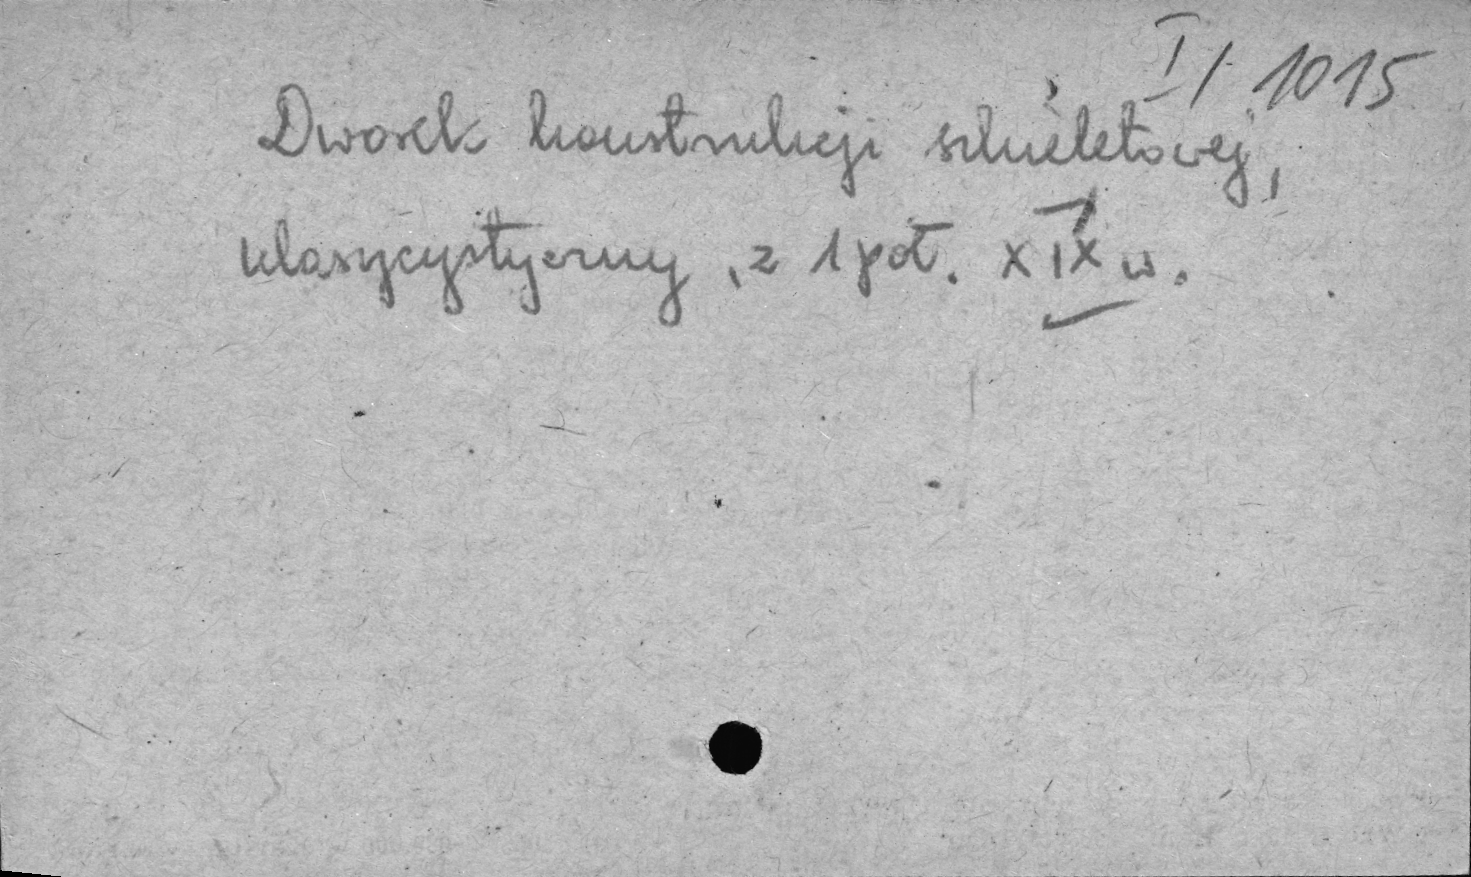 I/1015
Dworek konstrukcji szkieletowej,
klasycystyczny, z 1 poł. XIX w.